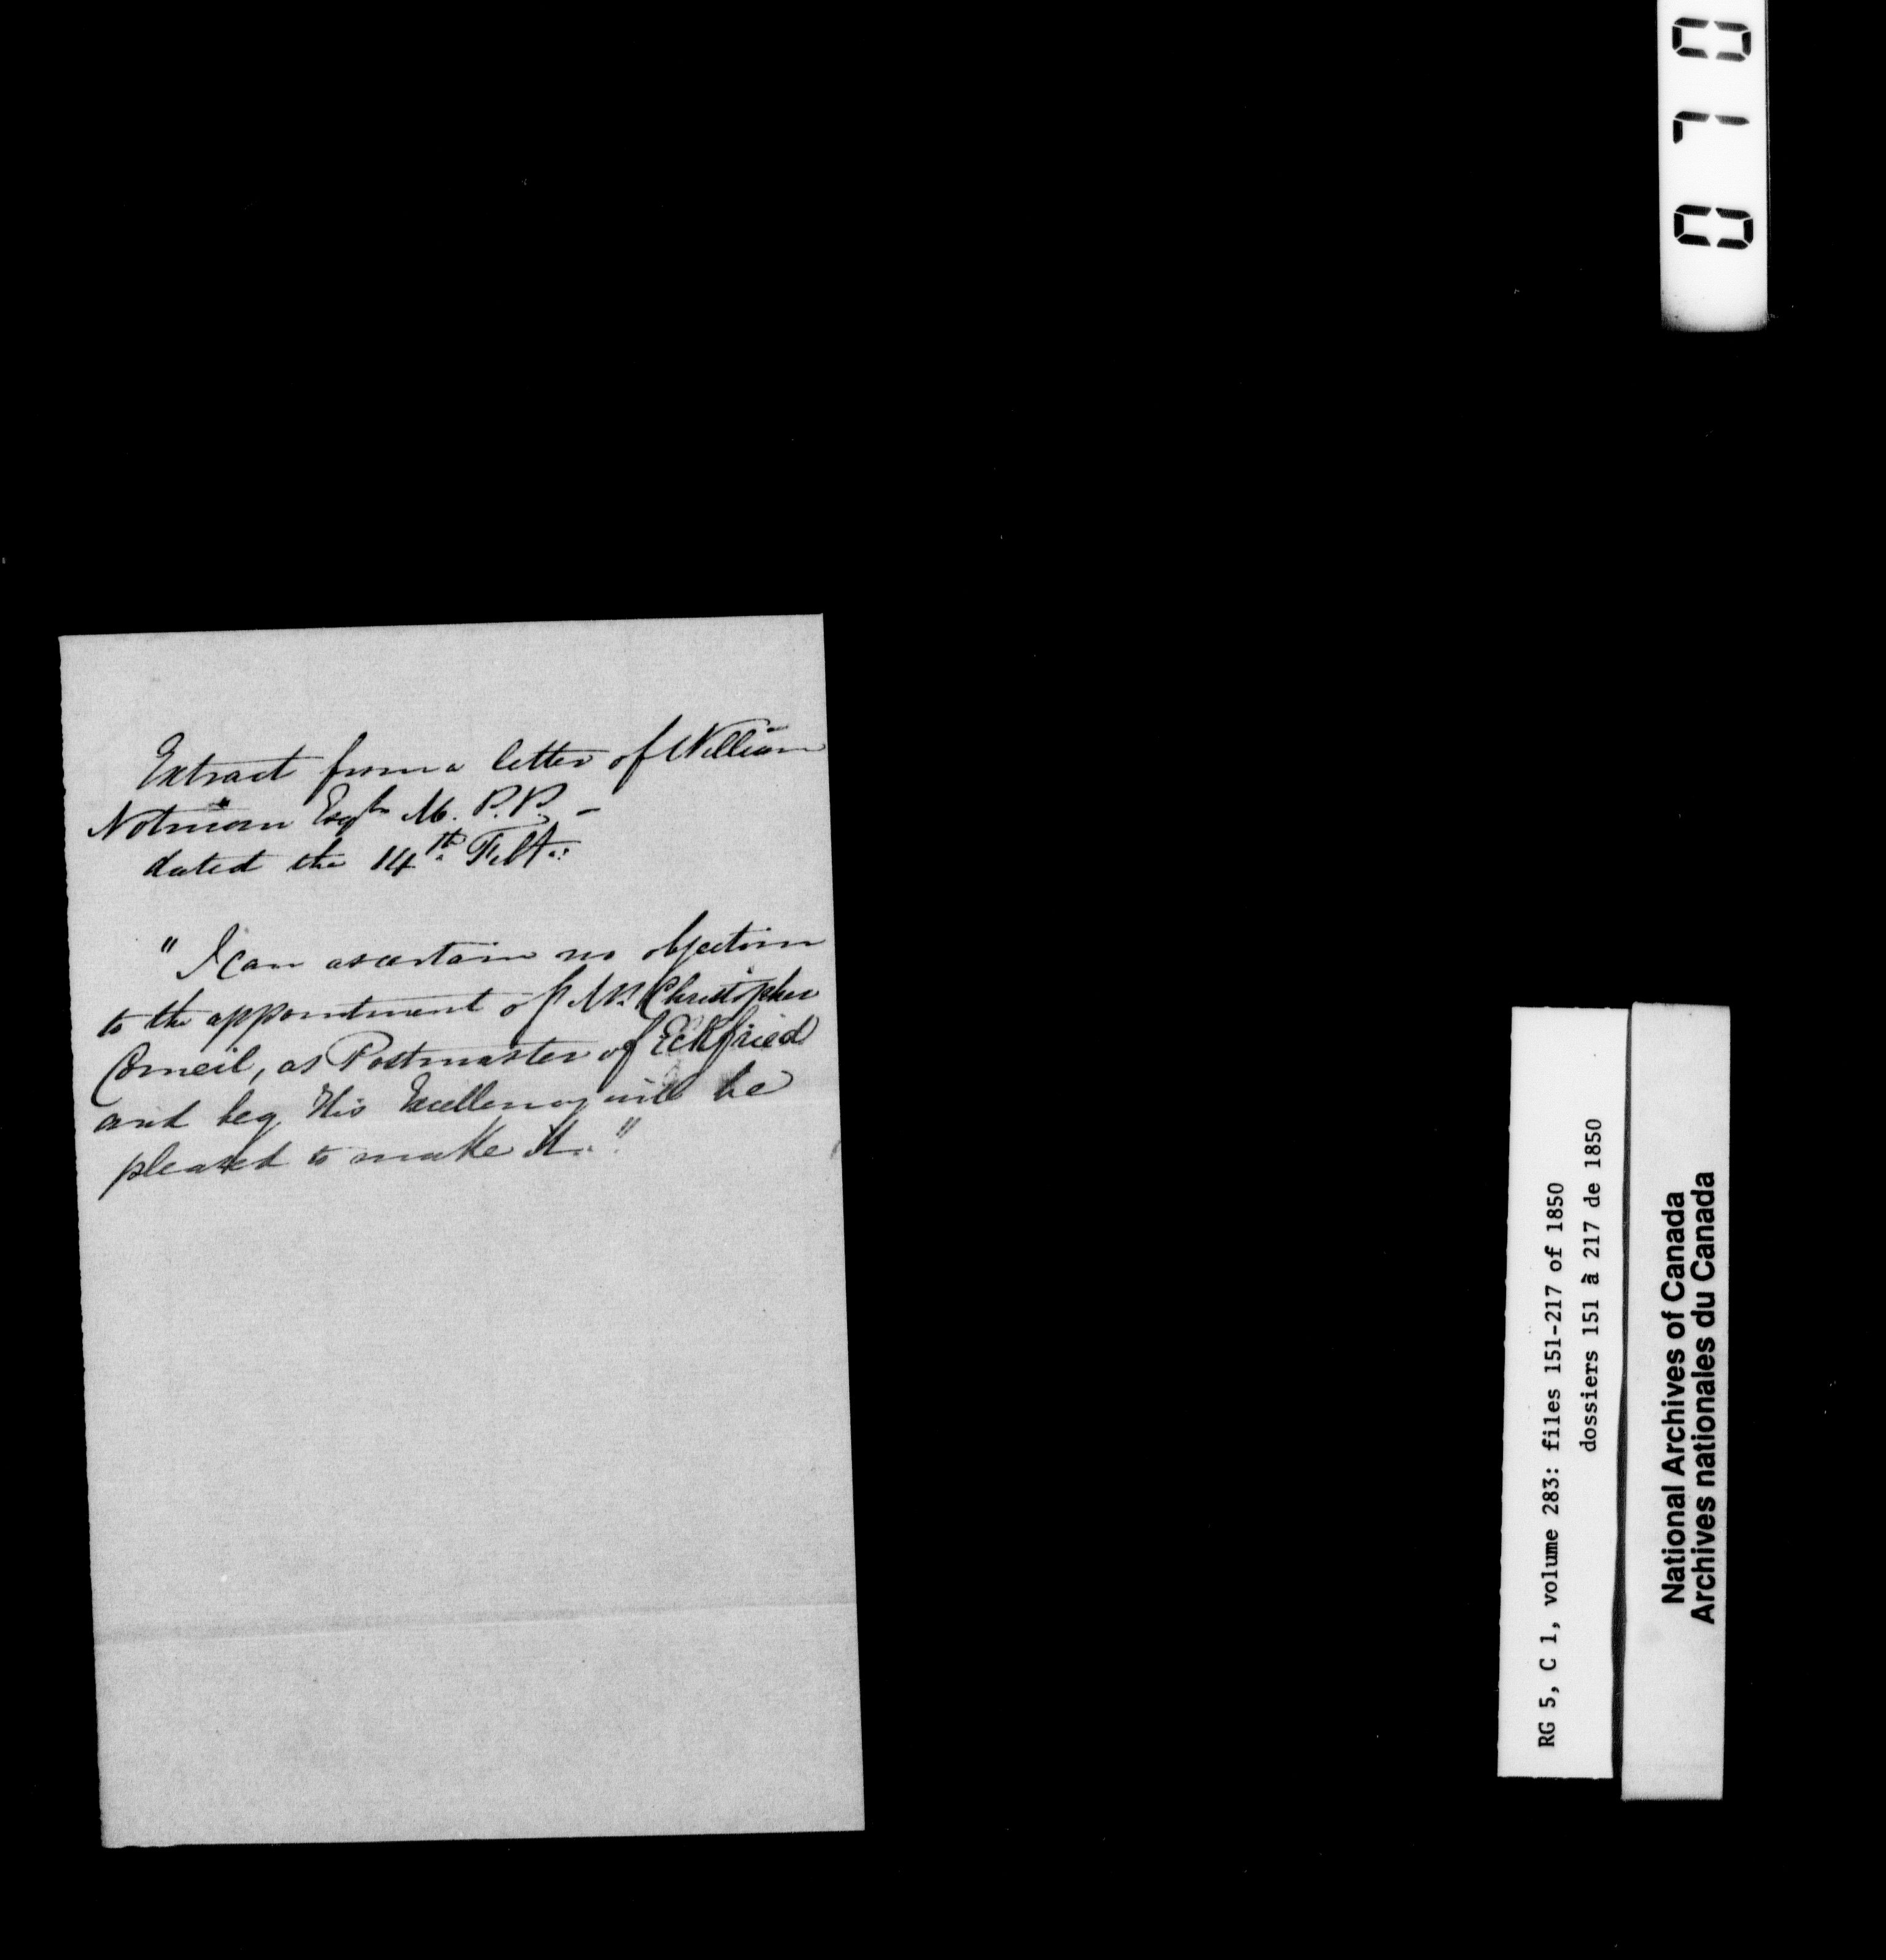 Extract from a letter of William
Notman Esqre M.P.P. –
dated the 14th Feb.
"I can ascertain no objection
to the appointment of Mr. Christopher
Corneil, as Postmaster of Eckfried
and beg His Excellency will be
pleased to make it."
0710
RG 5, C 1, volume 283: files 151-217 of 1850
dossiers 151 à 217 de 1850
National Archives of Canada
Archives nationales du Canada